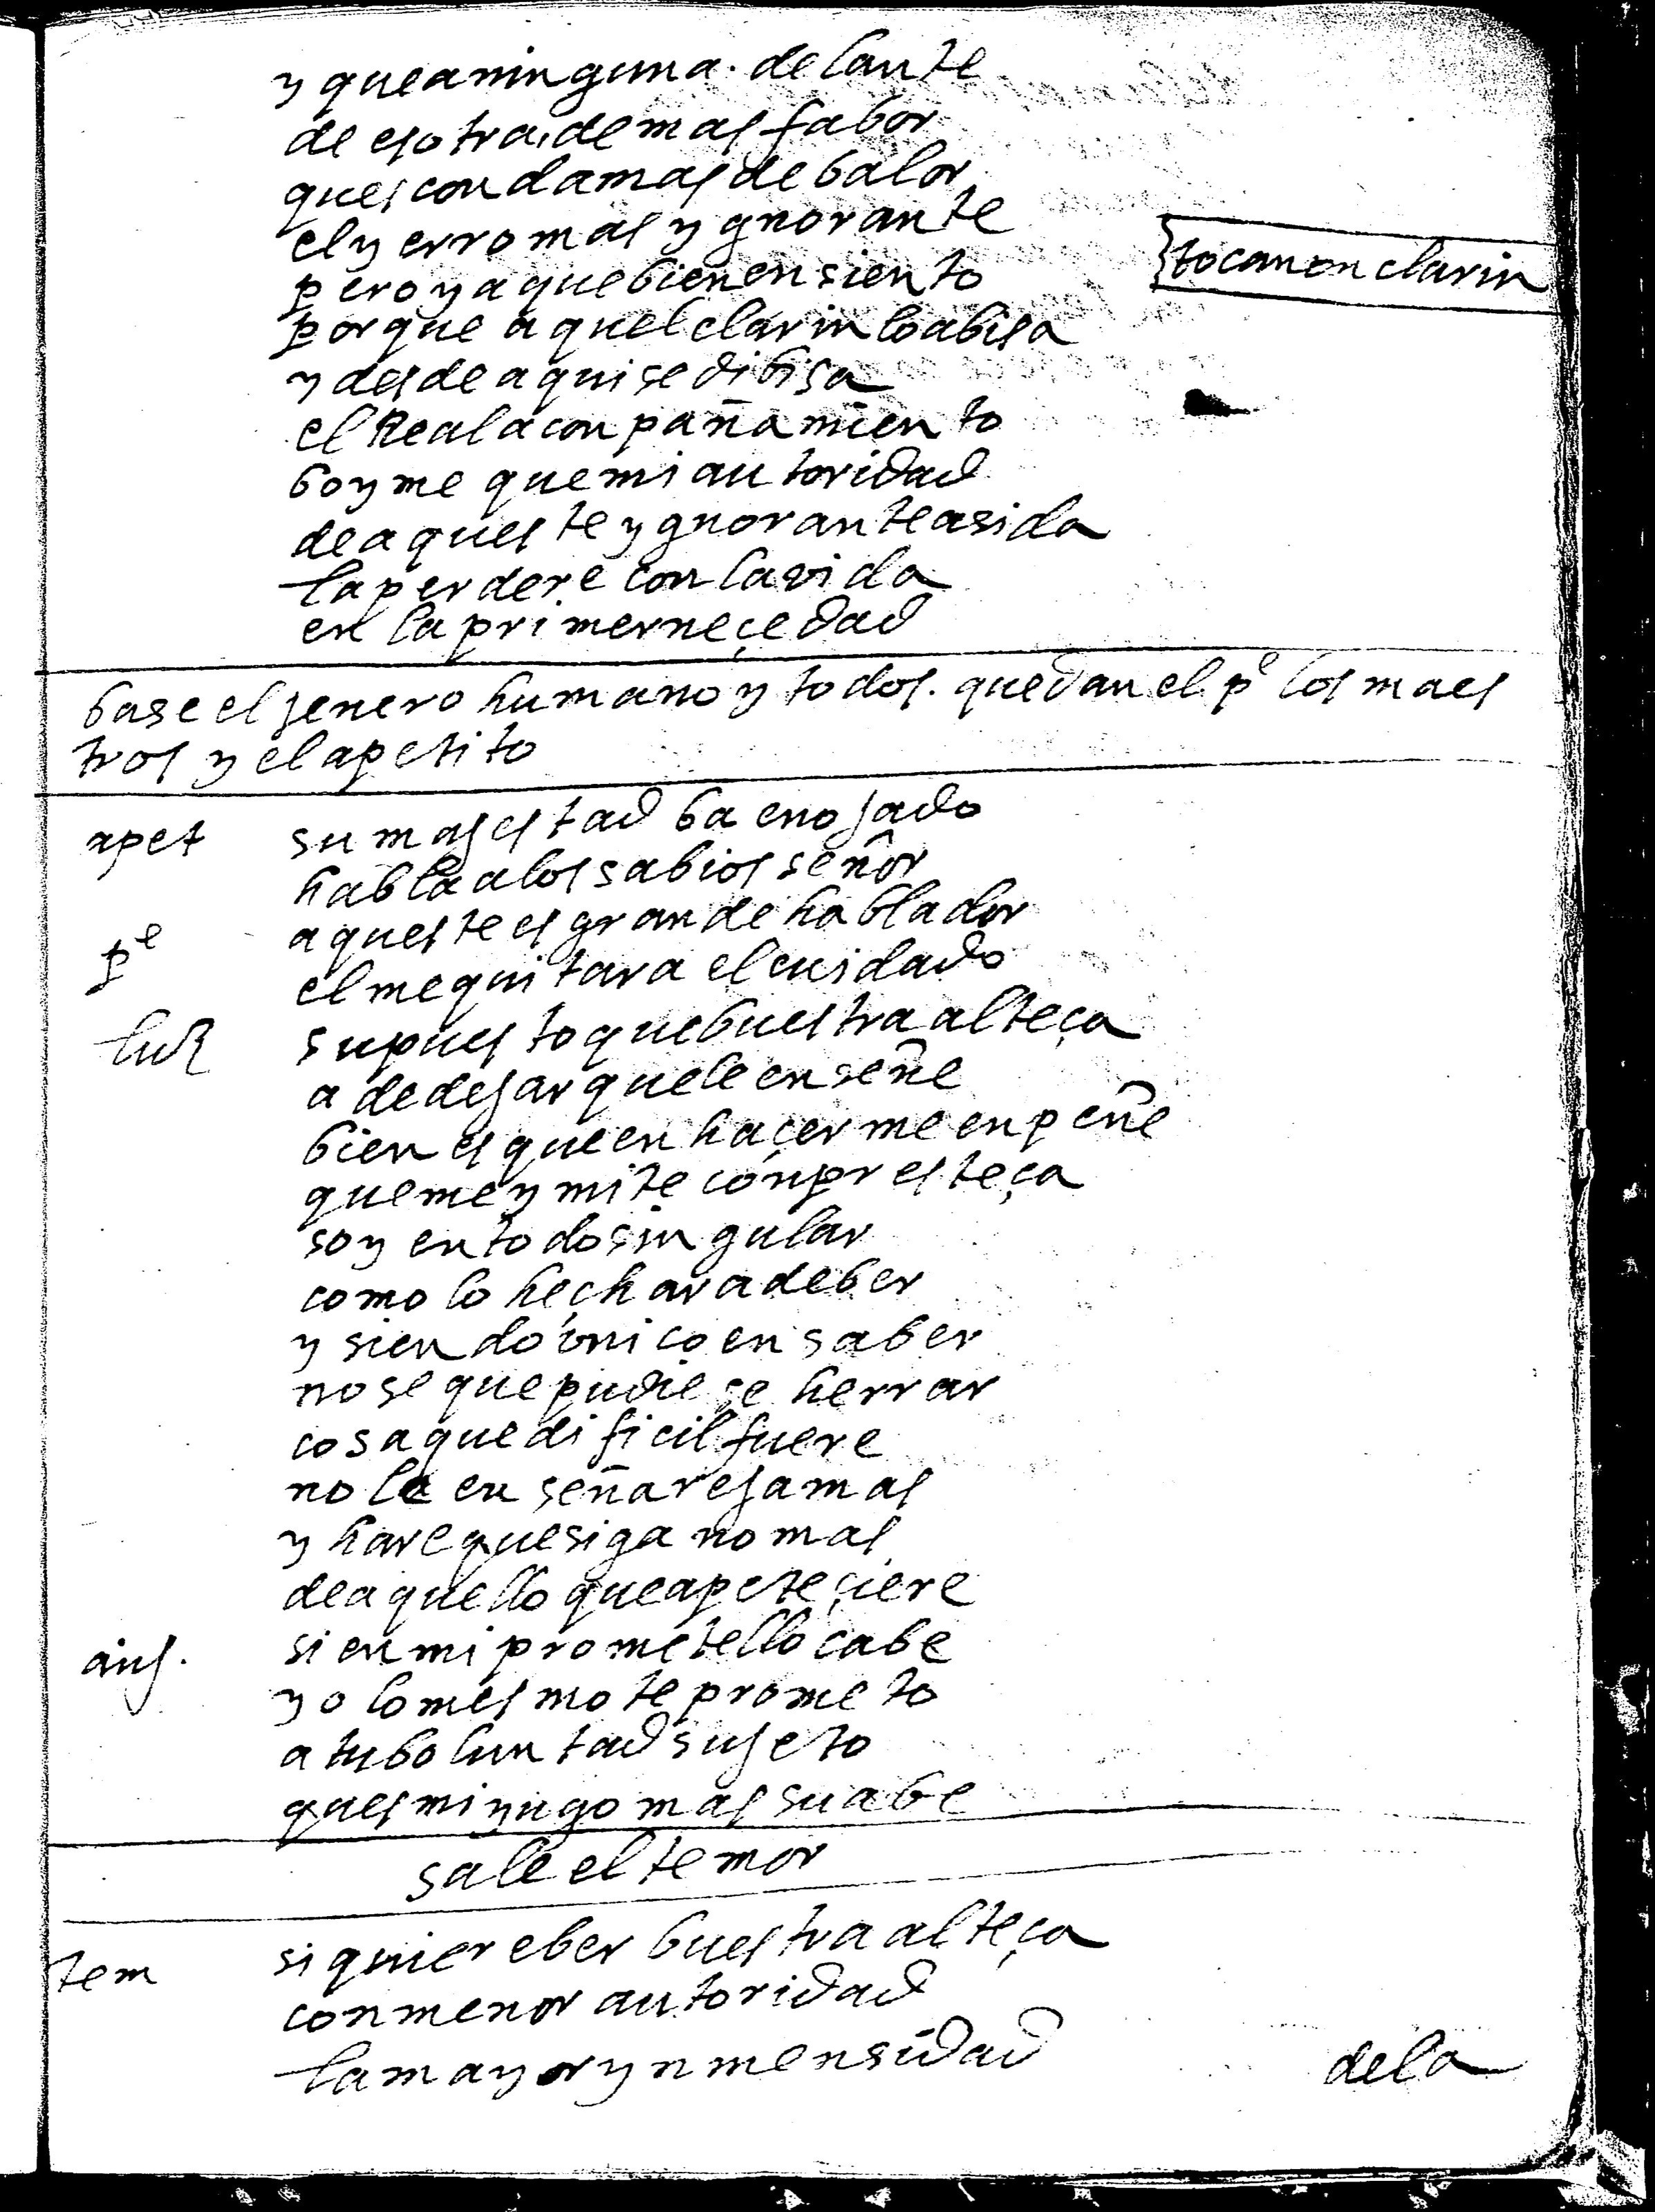 y que a ninguna. delante
de esotra, de mas fabor
ques con damas de balor
el yerro mas ygnorante
pero ya que bienen siento
tocan on clarin
porque aquel clarin lo abisa
y desde aqui se dibisa
el Real aconpañamiento
boyme que mi autoridad
de aqueste ygnorante asida
la perdere con la vida
en la primer neçedad
base el jenero humano y todos. quedan el pe los maes
tros y el apetito
apet su majestad ba enojado
habla a los sabios señor
pe aqueste es grande hablador
el me quitara el cuidado
luz supuesto que buestra alteça
a de dejar que le enseñe
bien es que en haçer me enpeñe
que me ymite con presteça
soy en todo singular
como lo hechara de ber
y siendo vnico en saber
no se que pudiese herrar
cosa que dificil fuere
no le enseñare jamas
y hare que siga no mas
de aquello que apeteçiere
si en mi prometello cabe
yo lo mesmo te prometo
a tu boluntad sujeto
ques mi yugo mas suabe
sale el temor
tem si quiere ber buestra alteça
con menor autoridad
la mayor ynmensidad
de la